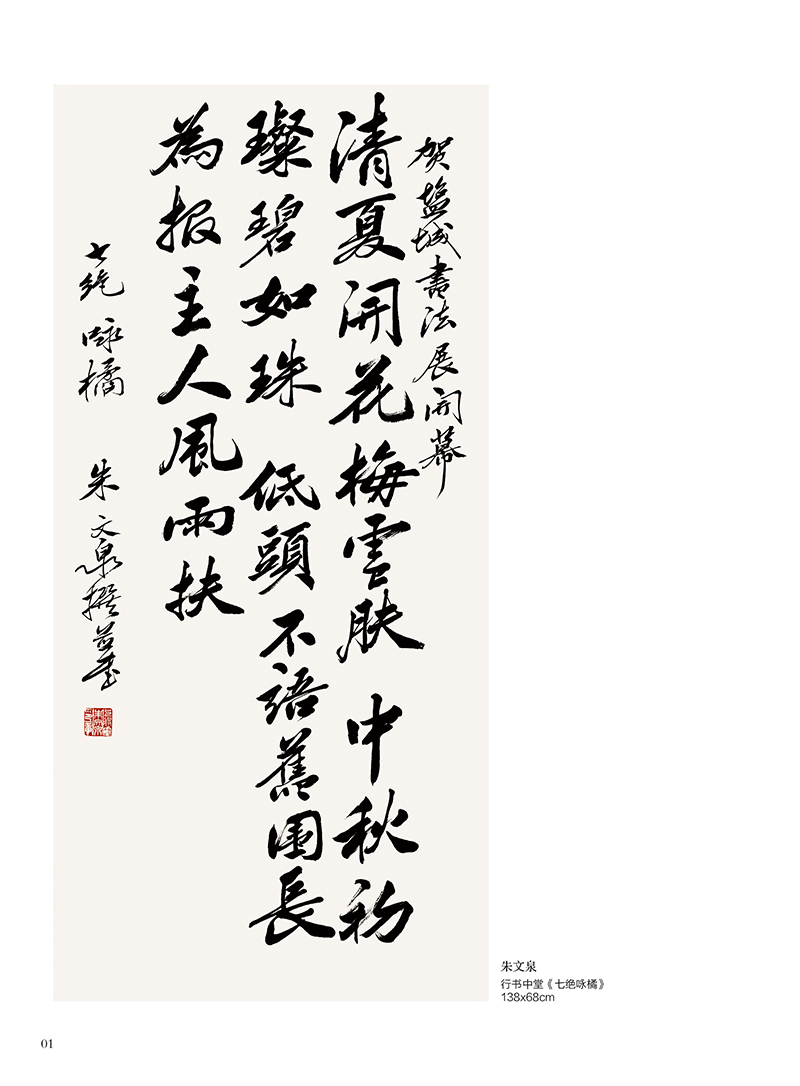 贺盐城書法展開幕
清夏開花梅雲肤 中秋初
璨碧如珠 低頭不語舊長
為报主人風雨扶
七绝 咏橘 朱文泉撰并書
朱文泉
行书中堂《七绝咏橘》
138x68cm
01